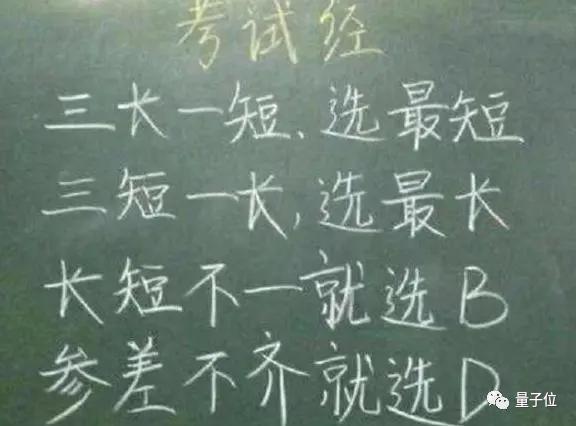 考试经
三长一短、选最短
三短一长,选最长
长短不一就选B
参差不齐就选D
量子位